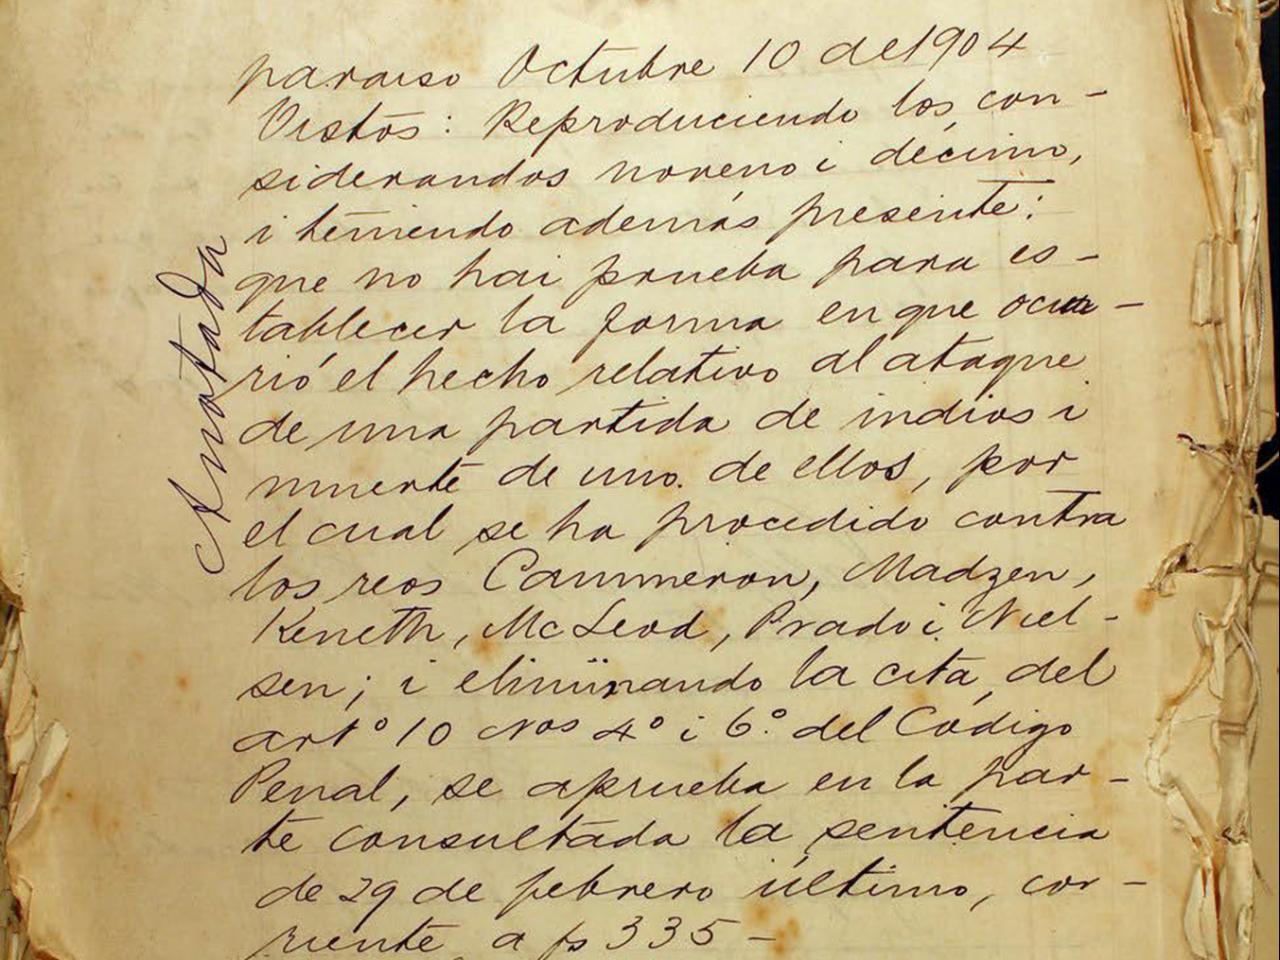 paraiso Octubre 10 de 1904
Vistos: Reproduciendo los con-
siderandos noveno i décimo,
i teniendo además presente:
que no hai prueba para es-
tablecer la forma en que ocur-
rió el hecho relativo al ataque
de una partida de indios i
muerte de uno de ellos, por
el cual se ha procedido contra
los reos Cammeron, Madzen,
Keneth, McLeod, Prado i Niel-
sen; i eliminando la cita del
artº 10 Nos 4º i 6º del Código
Penal, se aprueba en la par-
te consultada la sentencia
de 29 de febrero último, cor-
riente a fs 335-
Anotada